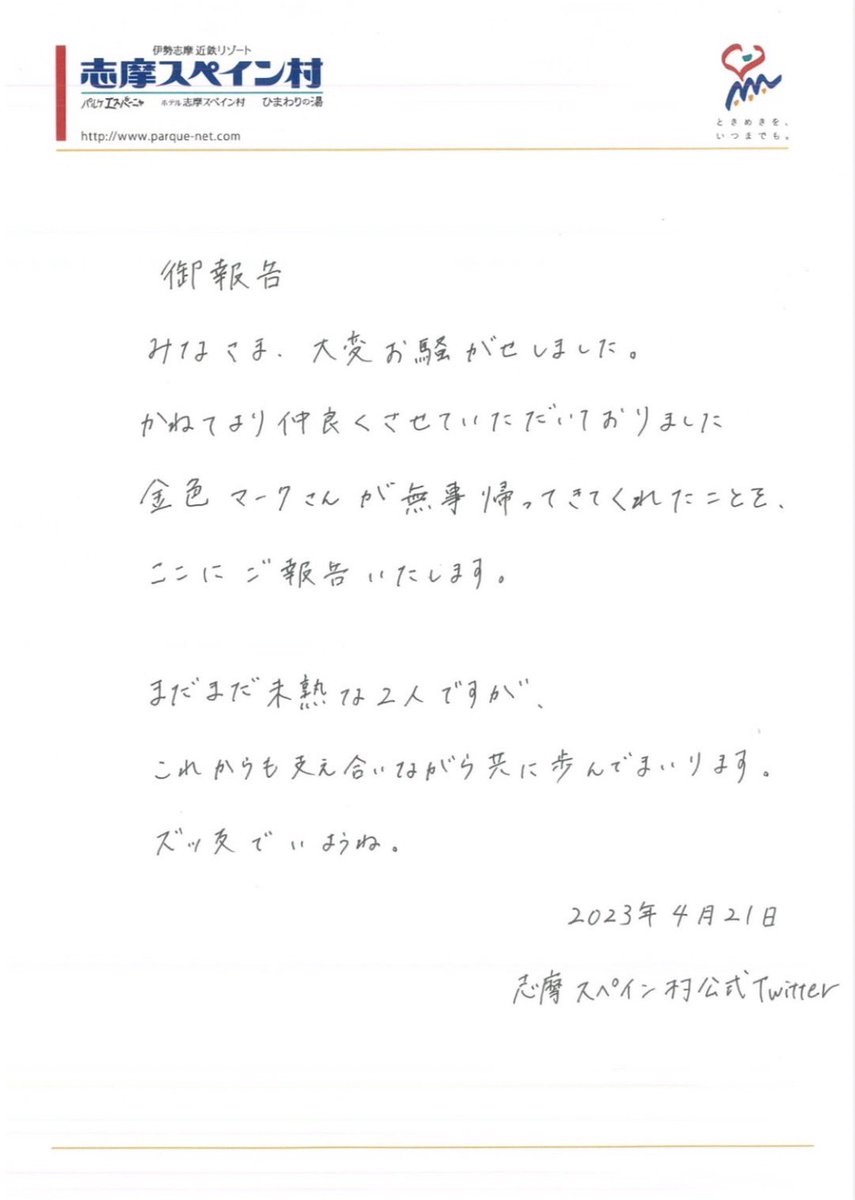 伊勢志摩 近鉄リゾート
志摩スペイン村
パルケエスパーニャ ホテル志摩スペイン村 ひまわりの湯
http://www.parque-net.com
ときめきを、
いつまでも。
御報告
みなさま、大変お騒がせしました。
かねてより仲良くさせていただいておりました
金色マークさんが無事帰ってきてくれたことを、
ここにご報告いたします。
まだまだ未熟な2人ですが、
これからも支え合いながら共に歩んでまいります。
ズッ友でいようね。
2023年4月21日
志摩スペイン村公式Twitter